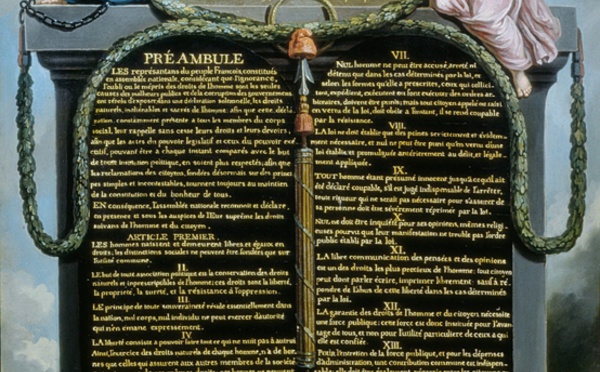 PRÉAMBULE
LES représentans du peuple François, constitués
en assemblée nationale, considérant que l'ignorance,
l'oubli ou le mépris des droits de l'homme sont les seules
causes des malheurs publics et de la corruption des gouvernemens
ont résolu d'exposer dans une déclaration solemnelle, les droits
naturels, inaliénables et sacrés de l'homme; afin que cette décla
ration, constamment présente a tous les membres du corps
social, leur rappelle sans cesse leurs droits et leurs devoirs;
afin que les actes du pouvoir législatif et ceux du pouvoir exé
cutif, pouvant être a chaque instant comparés avec le but
de toute institution politique, en soient plus respectés; afin que
les reclamations des citoyens, fondées désormais sur des princi
pes simples et incontestables, tournent toujours au maintien
de la constitution et du bonheur de tous.
EN conséquence, l'assemblée nationale reconnoit et déclare,
en presence et sous les auspices de l'Etre suprême les droits
suivans de l'homme et du citoyen.
ARTICLE PREMIER.
LES hommes naissent et demeurent libres et égaux en
droits; les distinctions sociales ne peuvent être fondées que sur
l'utilité commune.
II.
LE but de toute association politique est la conservation des droits
naturels et imprescriptibles de l'homme; ces droits sont la liberté,
la propriété, la sureté, et la résistance à l'oppression.
III.
LE principe de toute souveraineté réside essentiellement dans
la nation, nul corps, nul individu ne peut exercer d'autorité
qui n'en emane expressement.
IV
LA liberté consiste a pouvoir faire tout ce qui ne nuit pas à autrui
Ainsi, l'exercice des droits naturels de chaque homme, n'a de bor
nes que celles qui assurent aux autres membres de la société
VII.
NUL homme ne peut être accusé, arreté, ni
détenu que dans les cas déterminés par la loi, et
selon les formes qu'elle a prescrites, ceux qui sollici
tent, expédient, exécutent ou font exécuter des ordres ar-
bitraires, doivent être punis; mais tout citoyen appelé ou saisi
en vertu de la loi, doit obéir a l'instant, il se rend coupable
par la résistance.
VIII.
LA loi ne doit établir que des peines strictement et évidem-
ment nécessaire, et nul ne peut être puni qu'en vertu d'une
loi établie et promulguée antérierement au délit, et légale-
ment appliquée.
IX.
TOUT homme étant présumé innocent jusqu'a ce qu'il ait
été déclaré coupable, s'il est jugé indispensable de l'arrêter,
toute rigueur qui ne serait pas nécessaire pour s'assurer de
sa personne doit être sévèrement réprimée par la loi.
X.
NUL ne doit être inquiété pour ses opinions, mêmes religi
euses pourvu que leur manifestation ne trouble pas l'ordre
public établi par la loi.
XI.
LA libre communication des pensées et des opinions
est un des droits les plus precieux de l'homme; tout citoyen
peut donc parler, écrire, imprimer librement: sauf à ré-
pondre de l'abus de cette liberté dans les cas déterminés
par la loi.
XII.
LA garantie des droits de l'homme et du citoyen nécessite
une force publique; cette force est donc instituée pour l'avan-
tage de tous, et non pour l'utilité particulière de ceux a qui
elle est confiée.
XIII.
POUR l'entretien de la force publique, et pour les dépenses
d'administration, une contribution commune est indispen-